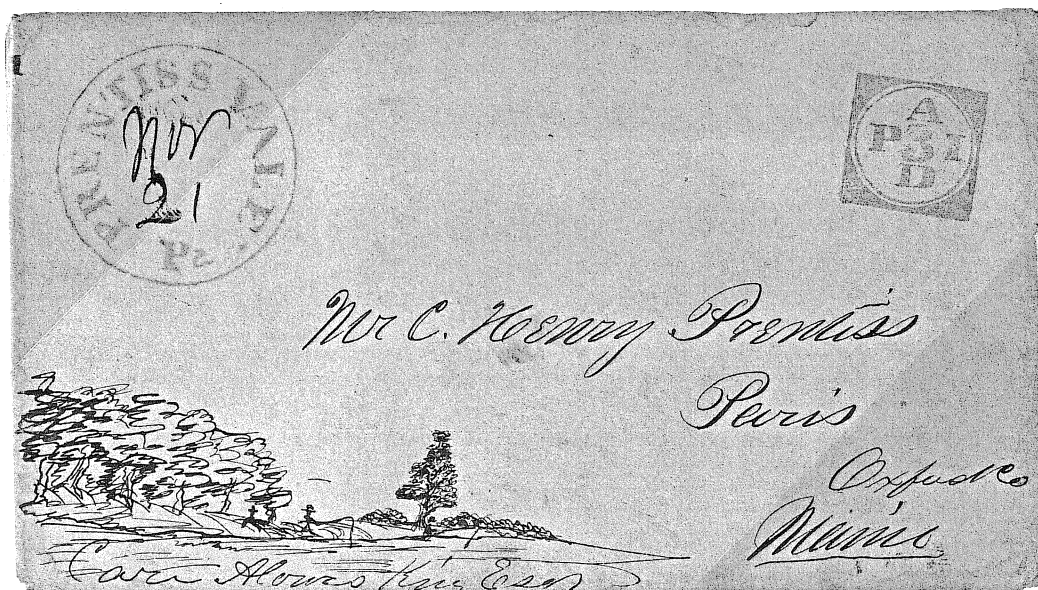 PRENTISSVALE. Pa.
Nov
21
PAID 3
Mr C. Henry Prentiss
Paris
Oxford Co
Maine
Care Alonzo King Esqr